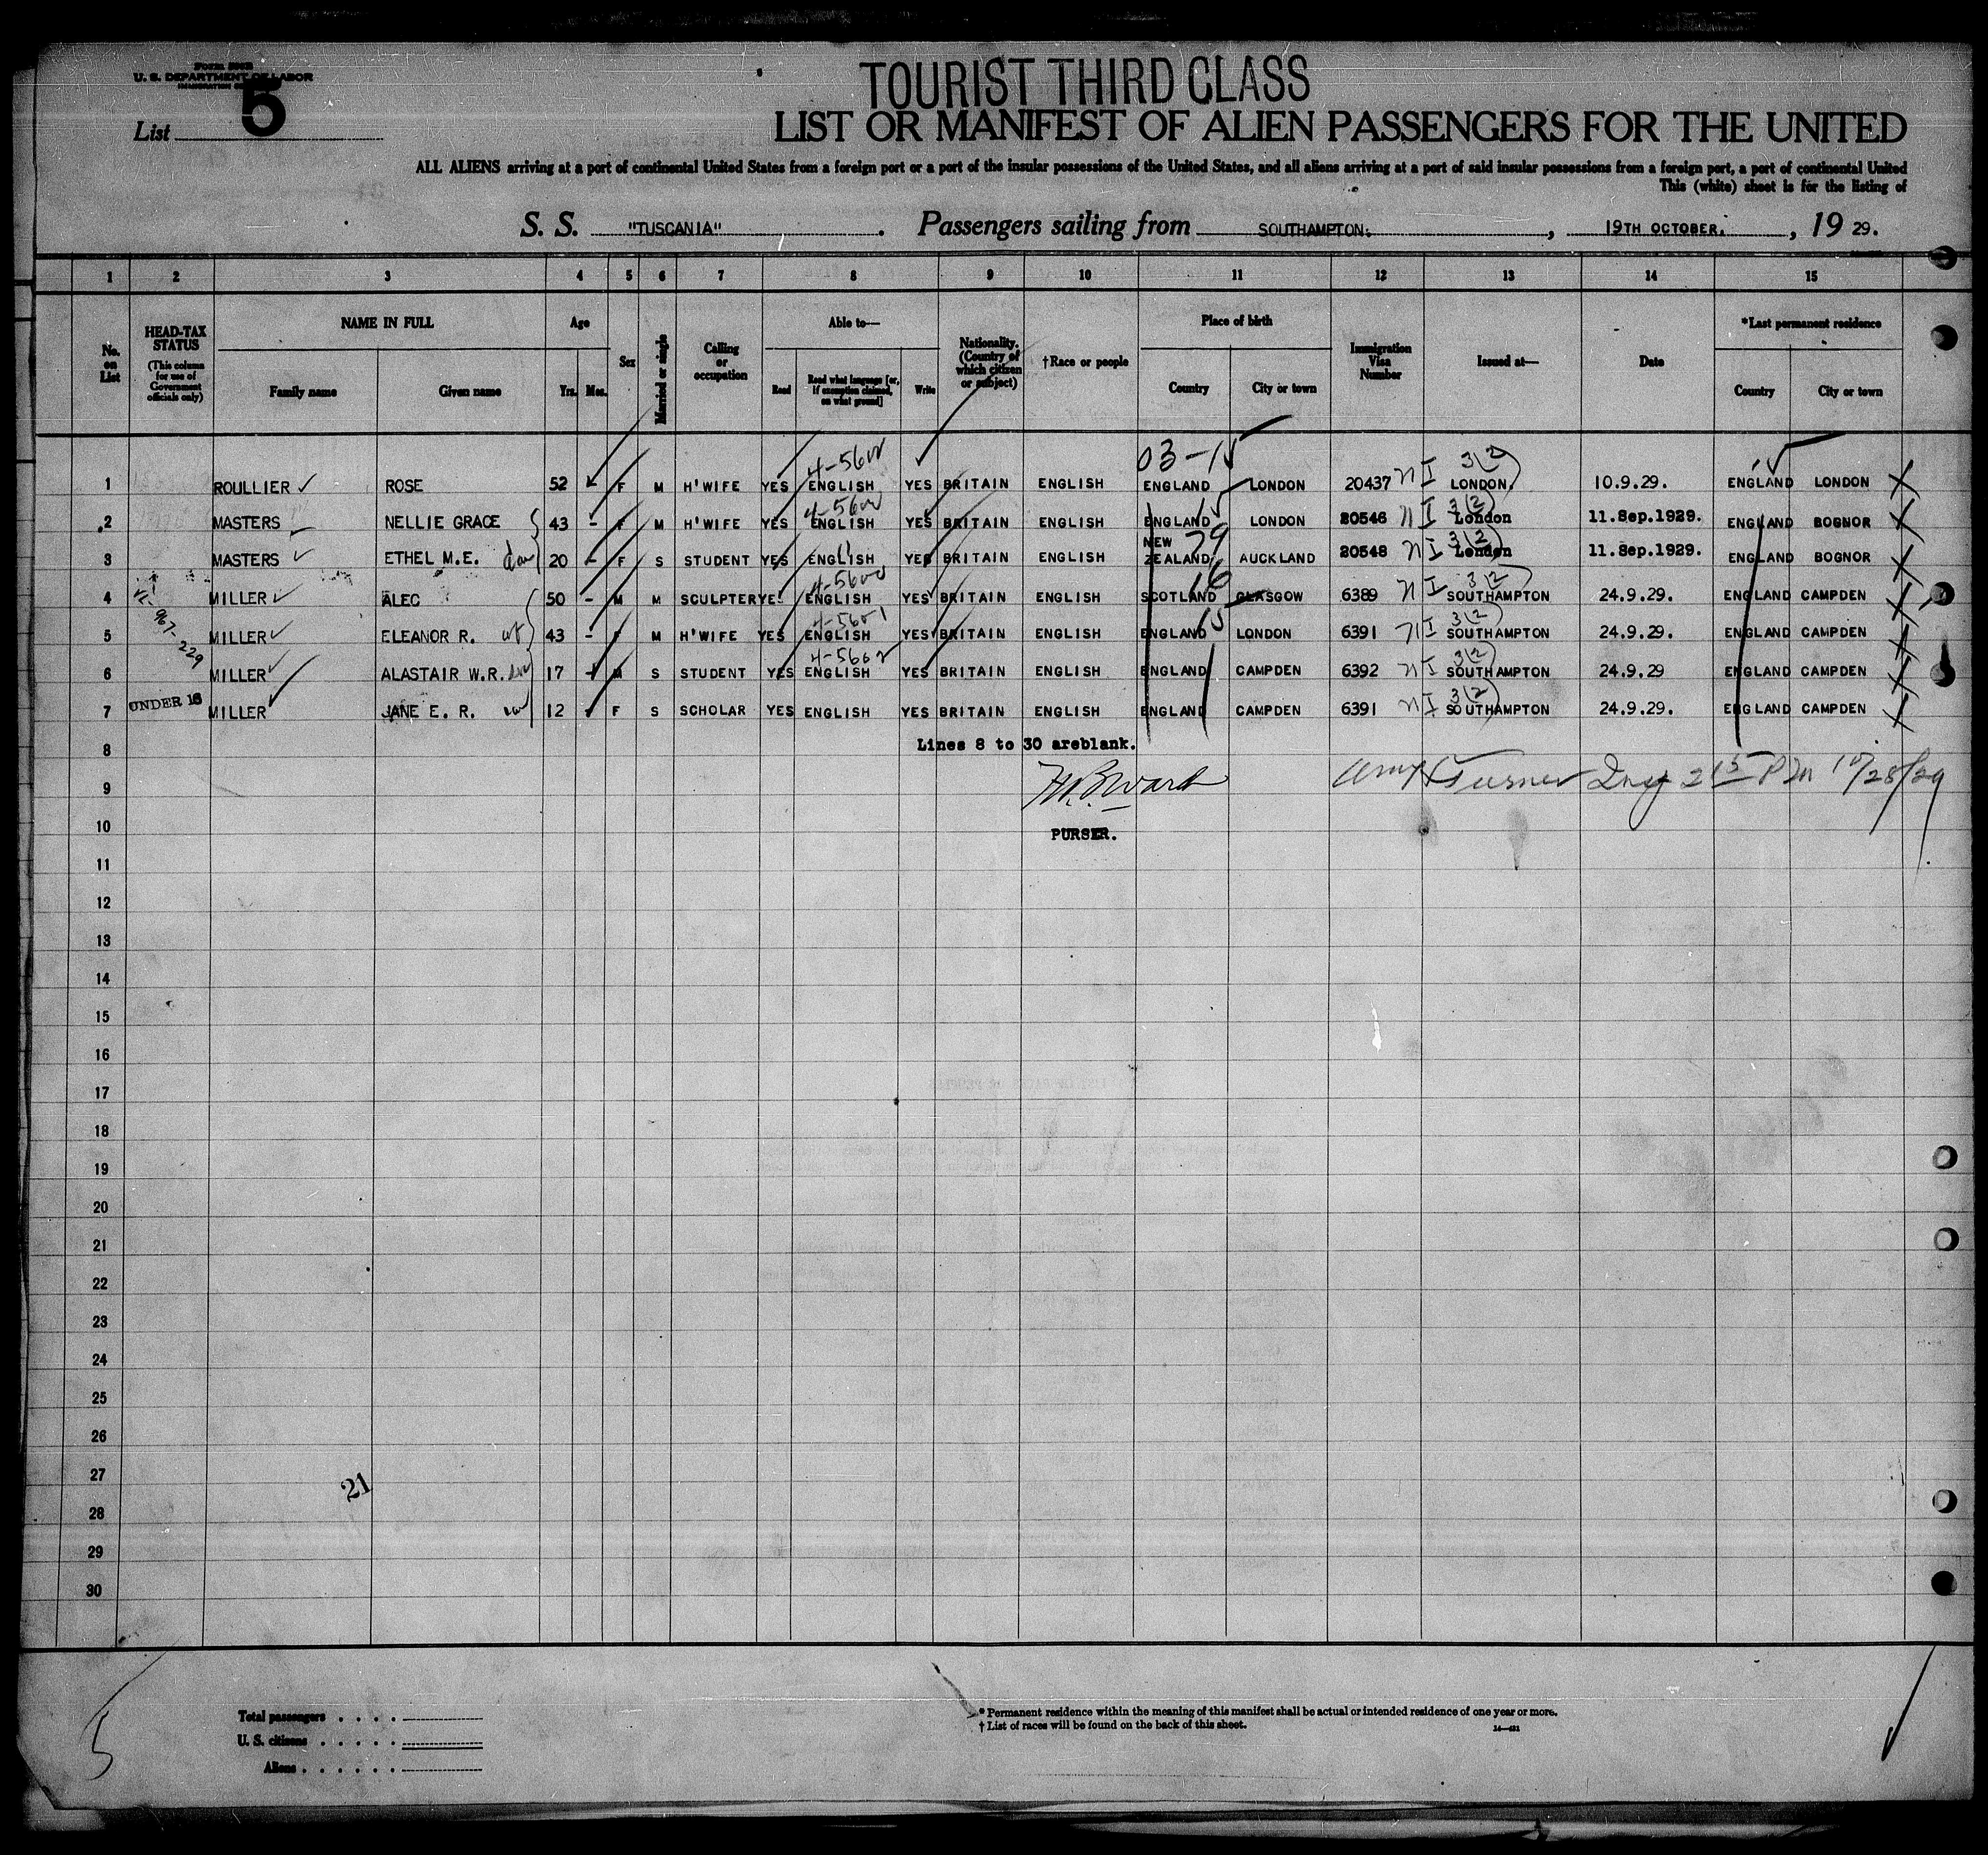 Form 500B
U. S. DEPARTMENT OF LABOR
IMMIGRATION
List 5
TOURIST THIRD CLASS
LIST OR MANIFEST OF ALIEN PASSENGERS FOR THE UNITED
ALL ALIENS arriving at a port of continental United States from a foreign port or a port of the insular possessions of the United States, and all aliens arriving at a port of said insular possessions from a foreign port, a port of continental United
This (white) sheet is for the listing of
S. S. "TUSCANIA" . Passengers sailing from SOUTHAMPTON. , 19TH OCTOBER. , 19 29.
1 2 3 4 5 6 7 8 9 10 11 12 13 14 15
No. on List HEAD-TAX STATUS (This column for use of Government officials only) NAME IN FULL Family name Given name Age Yrs. Mos. Sex Married or single Calling or occupation Able to— Read Read what language [or, if exemption claimed, on what ground] Write Nationality. (Country of which citizen or subject) †Race or people Place of birth Country City or town Immigration Visa Number Issued at— Date *Last permanent residence Country City or town
03-15
1 ROULLIER ROSE 52 - F M H'WIFE YES ENGLISH YES BRITAIN ENGLISH ENGLAND LONDON 20437 NI 3(2) LONDON. 10.9.29. ENGLAND LONDON X
2 MASTERS NELLIE GRACE 43 - F M H'WIFE YES ENGLISH YES BRITAIN ENGLISH ENGLAND LONDON 20546 NI 3(2) London 11.Sep.1929. ENGLAND BOGNOR X
3 MASTERS ETHEL M.E. dau 20 - F S STUDENT YES ENGLISH YES BRITAIN ENGLISH NEW ZEALAND 79 AUCKLAND 20548 NI 3(2) London 11.Sep.1929. ENGLAND BOGNOR X
4 MILLER ALEC 50 - M M SCULPTER YES ENGLISH YES BRITAIN ENGLISH SCOTLAND 16 GLASGOW 6389 NI 3(2) SOUTHAMPTON 24.9.29. ENGLAND CAMPDEN X
5 MILLER ELEANOR R. wf 43 - F M H'WIFE YES ENGLISH YES BRITAIN ENGLISH ENGLAND 15 LONDON 6391 NI 3(2) SOUTHAMPTON 24.9.29. ENGLAND CAMPDEN X
6 MILLER ALASTAIR W.R. 17 - M S STUDENT YES ENGLISH YES BRITAIN ENGLISH ENGLAND CAMPDEN 6392 NI 3(2) SOUTHAMPTON 24.9.29 ENGLAND CAMPDEN X
7 UNDER 16 MILLER JANE E. R. 12 - F S SCHOLAR YES ENGLISH YES BRITAIN ENGLISH ENGLAND CAMPDEN 6391 NI 3(2) SOUTHAMPTON 24.9.29. ENGLAND CAMPDEN X
8 Lines 8 to 30 areblank.
9 Turner 10/28/29
10 PURSER.
11
12
13
14
15
16
17
18
19
20
21
22
23
24
25
26
27 21
28
29
30
5
Total passengers
U. S. citizens
Aliens
* Permanent residence within the meaning of this manifest shall be actual or intended residence of one year or more.
† List of races will be found on the back of this sheet.